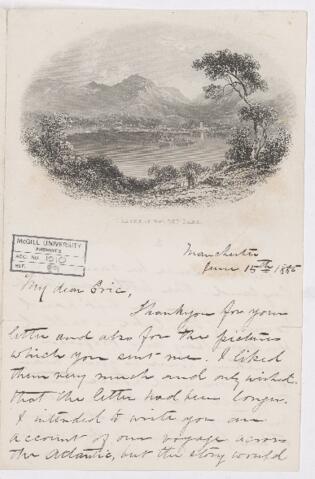 McGILL UNIVERSITY
ARCHIVES
ACC. NO. 1010
REF.
Manchester
June 15th 1885
My dear Eric,
Thankyou for your
letter and also for the pictures
which you sent me. I liked
them very much and only wished
that the letter had been longer.
I intended to write you an
account of our voyage across
the Atlantic, but the story would